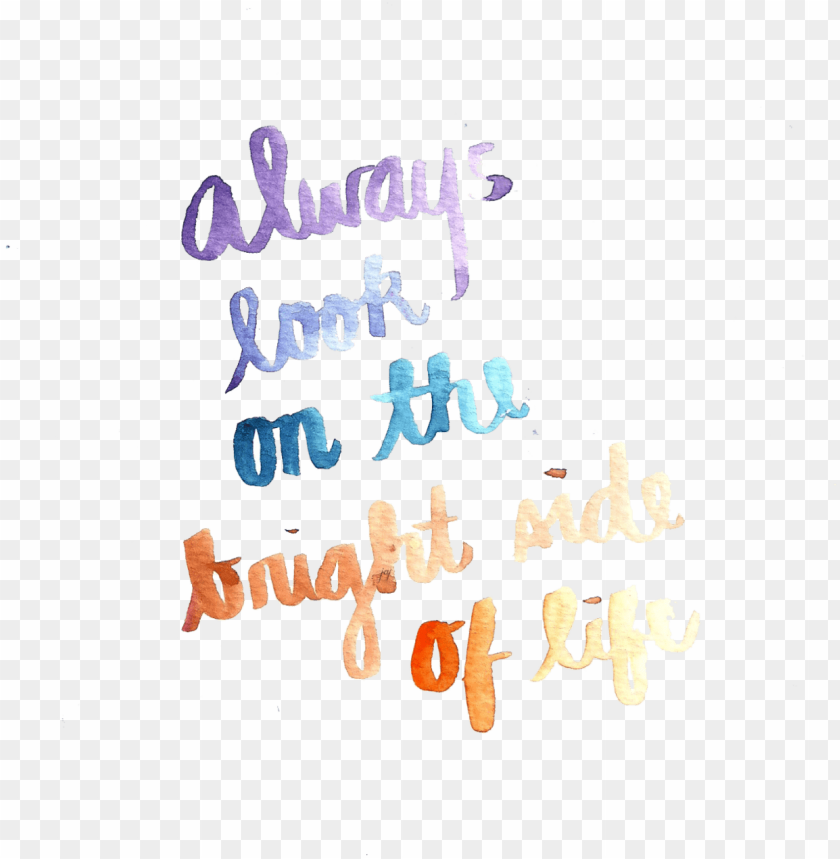 always
look
on the
bright side
of life